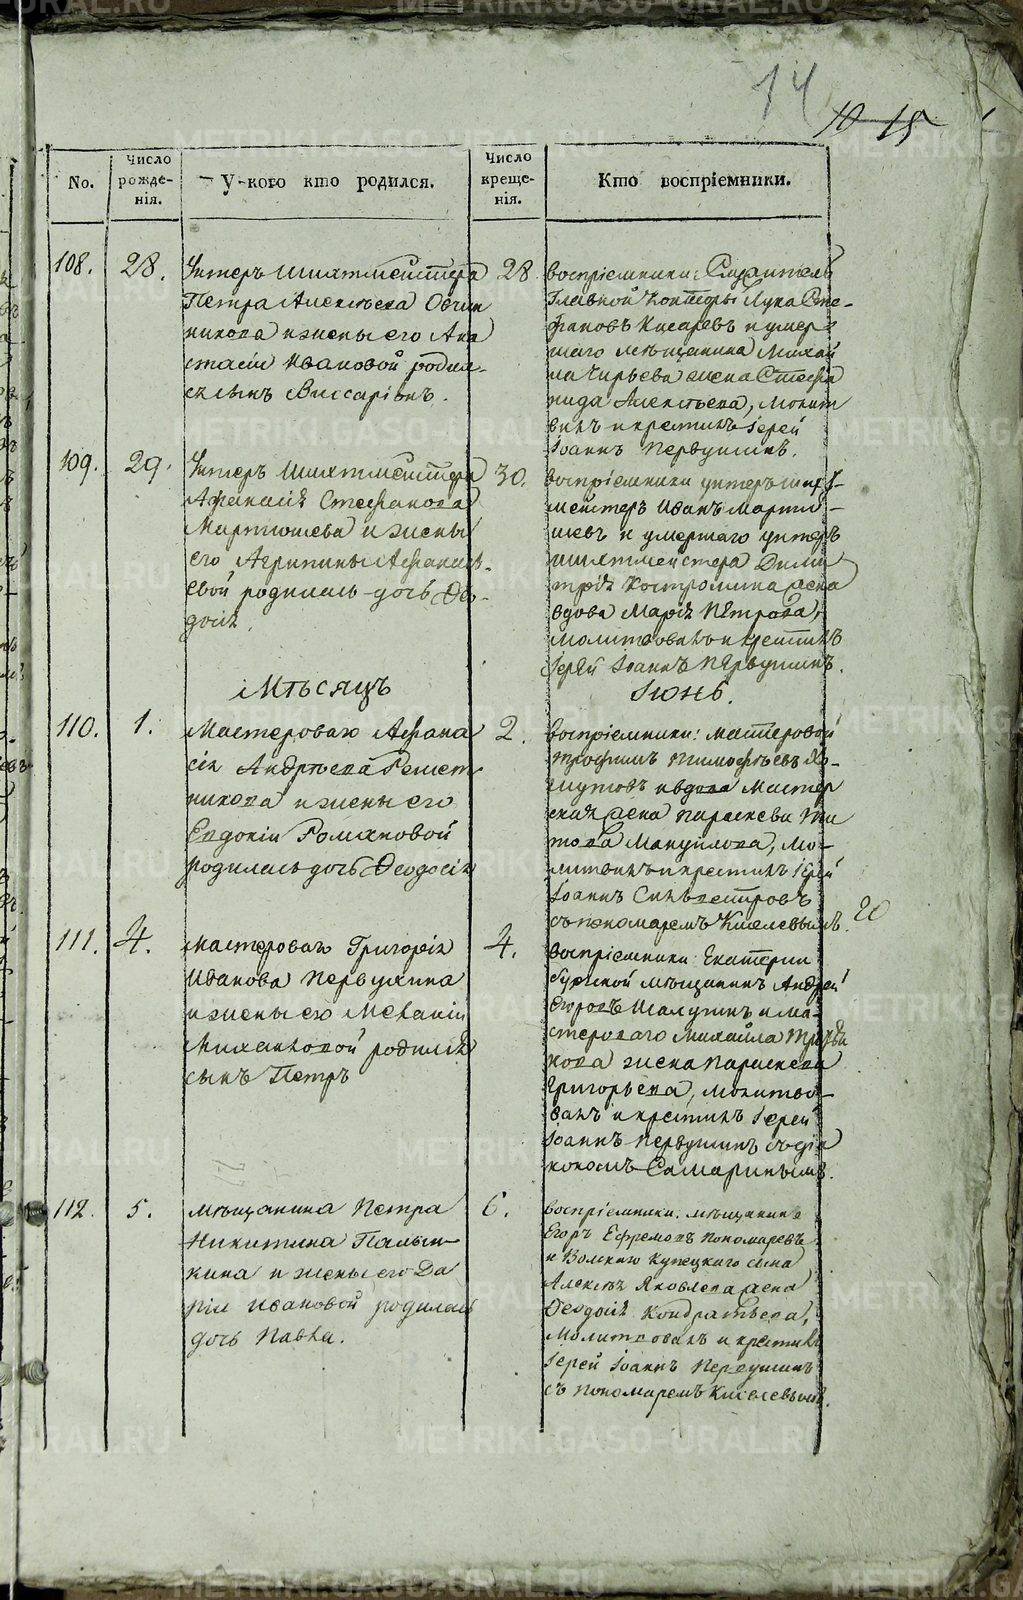 14
10 15
No.
Число рожденія.
У кого кто родился.
Число крещенія.
Кто воспріемники.
108.
28.
Унтеръ Шихтмейстера
Петра Алексѣева Овчин
никова и жены его Ана
стасіи Ивановой родил-
ся сынъ Виссаріонъ.
28
воспріемники: Служитель
Главной Конторы Лука Сте-
фановъ Писаревъ и умер
шаго мѣщанина Михай
ла Чирьева жена Стефа
нида Алексѣева, молит
вилъ и крестилъ Іерей
Іоаннъ Первушинъ.
109.
29.
Унтеръ Шихтмейстера
Афанасія Стефанова
Мартюшева и жены
его Агрипины Афанась-
евой родилась дочь Ѳео-
досія.
30.
воспріемники унтеръ шихт-
мейстеръ Иванъ Мартю-
шевъ и умершаго унтеръ
шихтмейстера Дими
трія Костромина жена
вдова Марія Петрова,
молитвовалъ и крестилъ
Іерей Іоаннъ Первушинъ.
Мѣсяцъ
Іюнь.
110.
1.
Мастероваго Афана
сія Андрѣева Решет
никова и жены его
Евдокіи Романовой
родилась дочь Ѳеодосія
2.
воспріемники: мастеровой
Трофимъ Тимофѣевъ Хо-
мутовъ и вдова Мастер
ская жена Параскева Ти
това Мануйлова, мо-
литвилъ и крестилъ Іерей
Іоаннъ Сильвестровъ
съ пономаремъ Киселевымъ.
20
111.
4.
мастероваго Григорія
Иванова Первухина
и жены его Меланіи
Михайловой родился
сынъ Петръ
4.
воспріемники: Екатерин
бургской мѣщанинъ Андрей
Егоровъ Шалунинъ и ма-
стероваго Михайла
кова жена Параскева
Григорьева, молитво-
валъ и крестилъ Іерей
Іоаннъ Первушинъ съ діа
кономъ Самаринымъ.
112.
5.
мѣщанина Петра
Никитина Палки-
кина и жены его Да
ріи Ивановой родилась
дочь Павла.
6.
воспріемники: мѣщанинъ
Егоръ Ефремовъ Пономаревъ
и Волскаго купецкаго сына
Алексѣя Яковлева жена
Ѳеодосія Кондратьева,
молитвовалъ и крестилъ
Іерей Іоаннъ Первушинъ
съ пономаремъ Киселевымъ.
METRIKI.GASO-URAL.RU